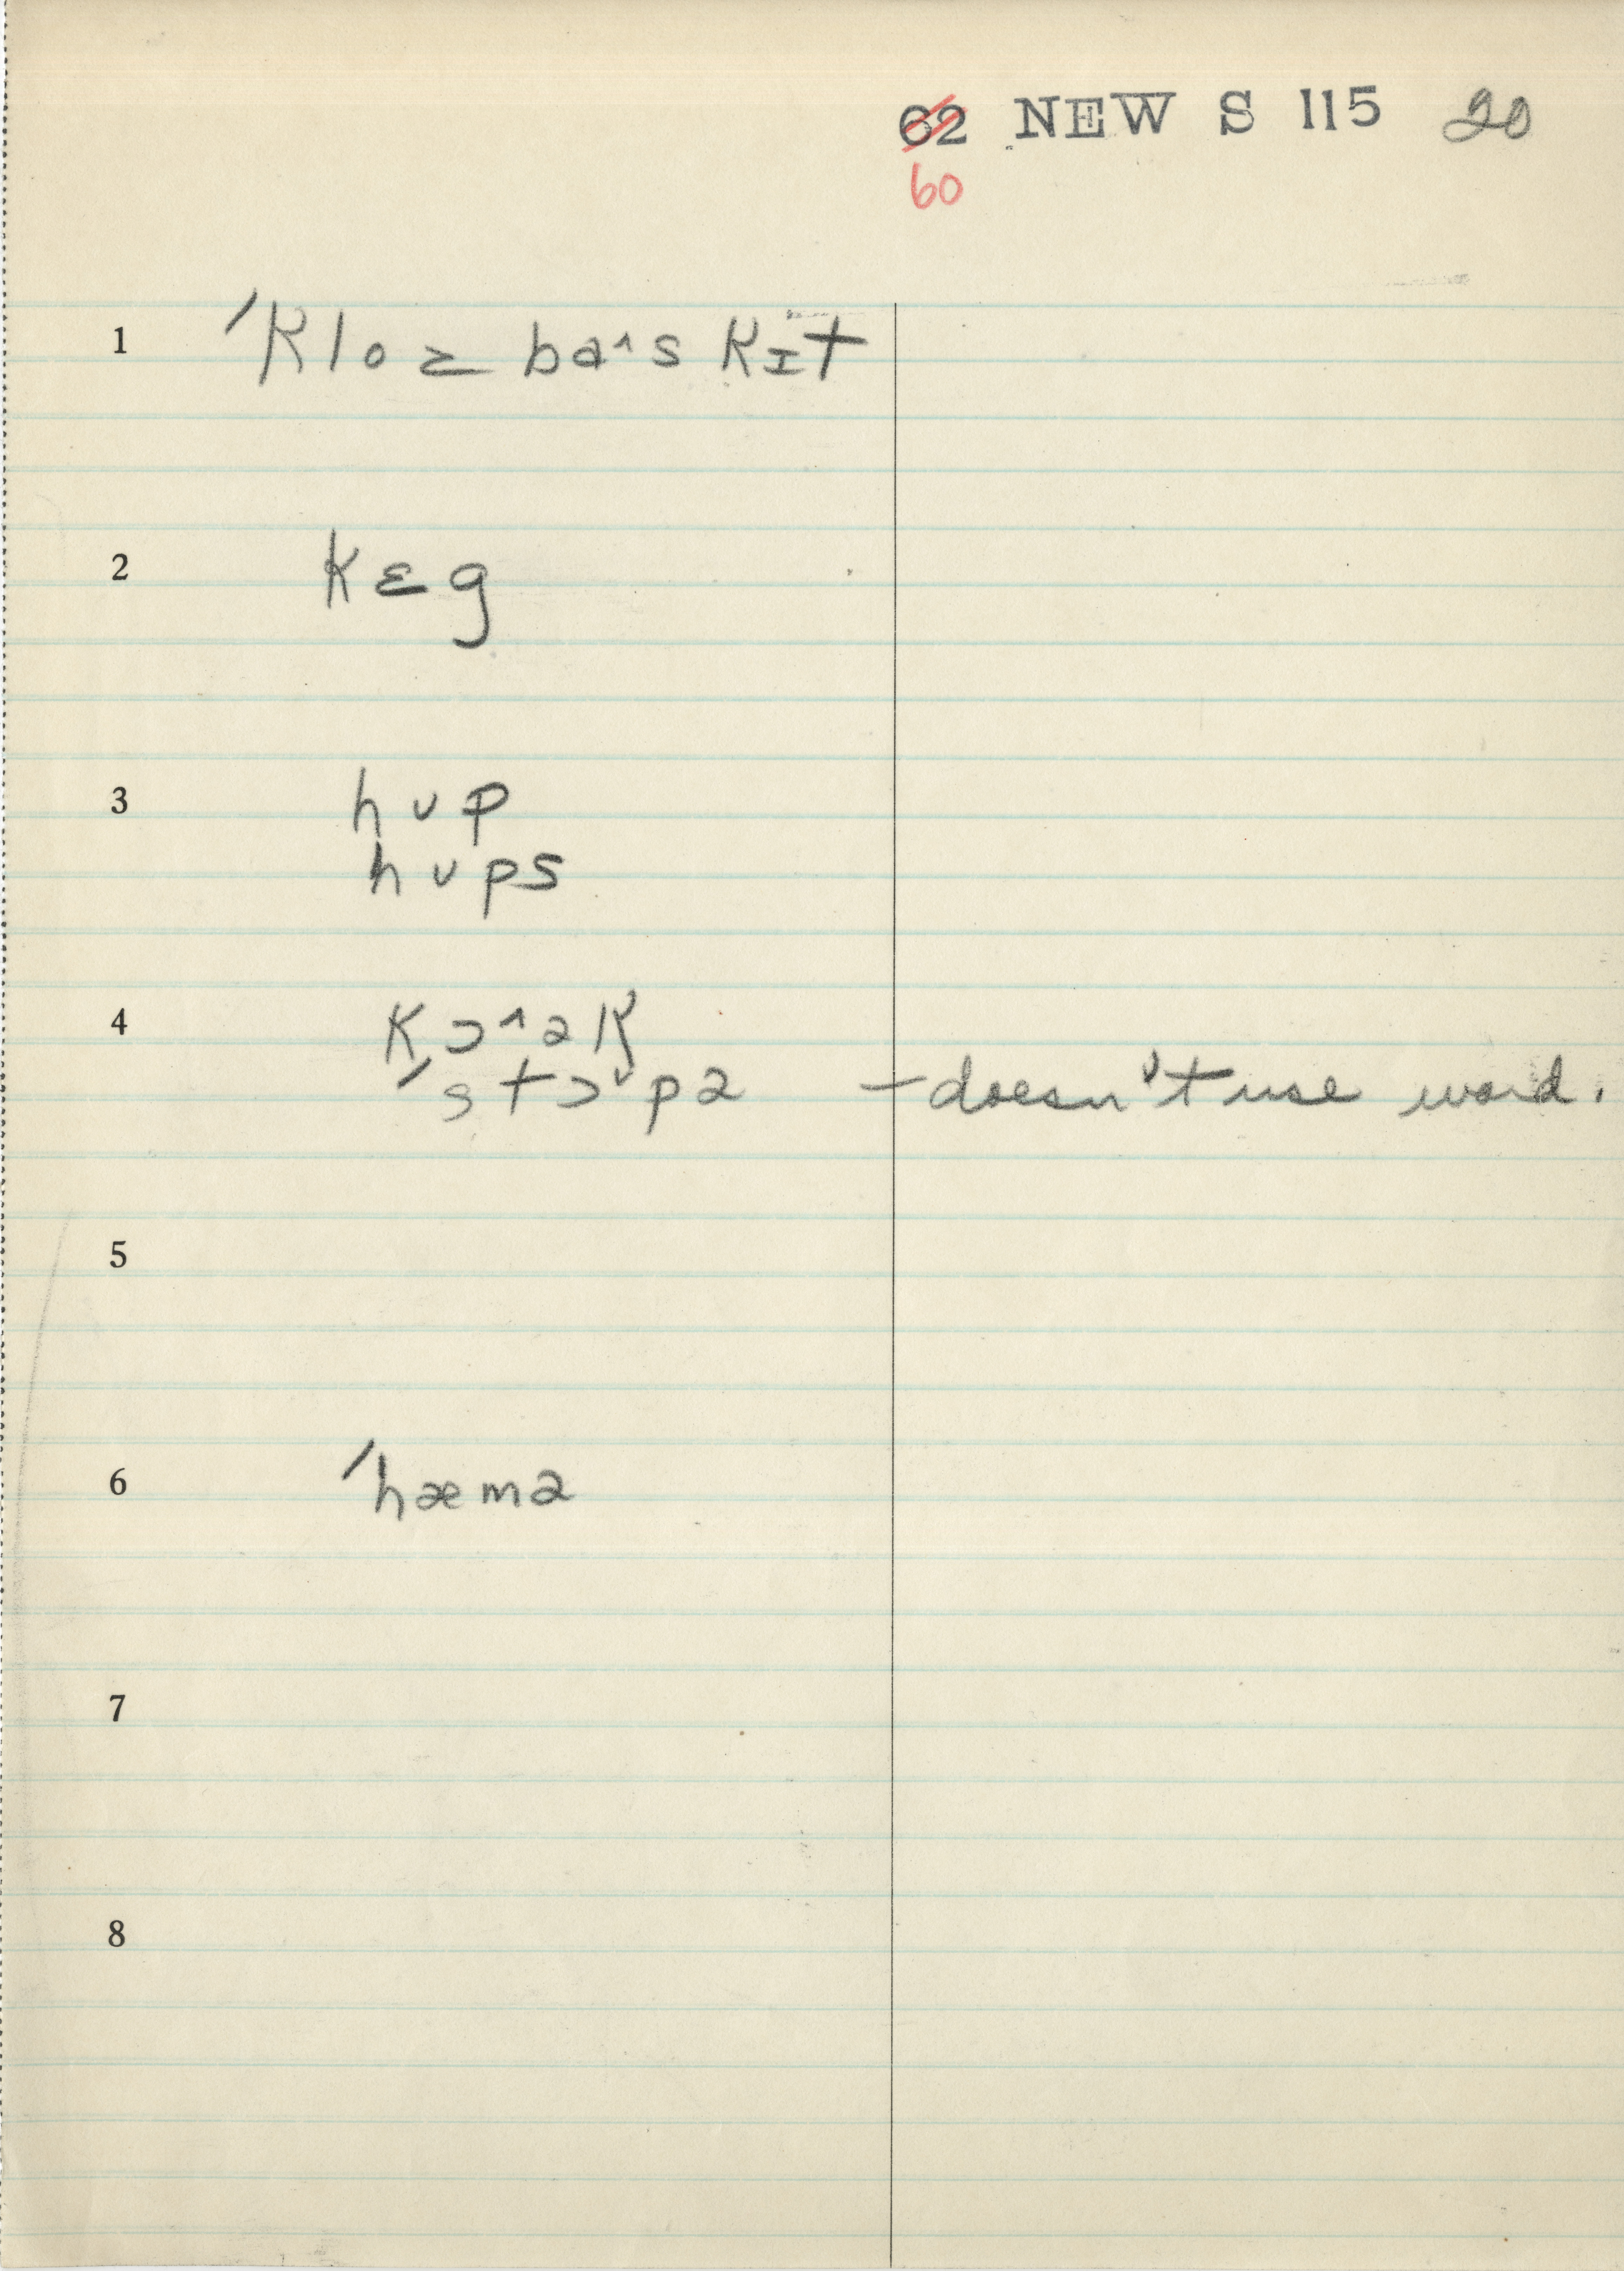 62 NEW S 115 20
60
1 ˈkloz baˆskɪt
2 kɛg
3 hʊp
hʊps
4 kɔˆək
ˈstɔˇpə – doesn't use word.
5
6 ˈhæmə
7
8